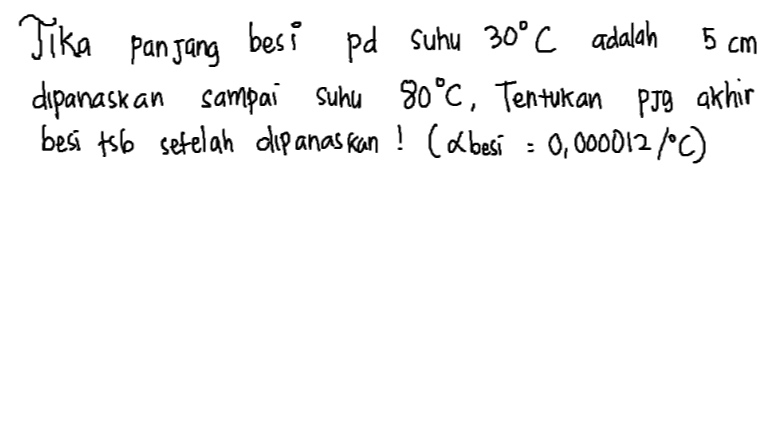 Jika panjang besi pd suhu 30°C adalah 5 cm
dipanaskan sampai suhu 80°C, Tentukan pjg akhir
besi tsb setelah dipanaskan ! (αbesi = 0,000012/°C)